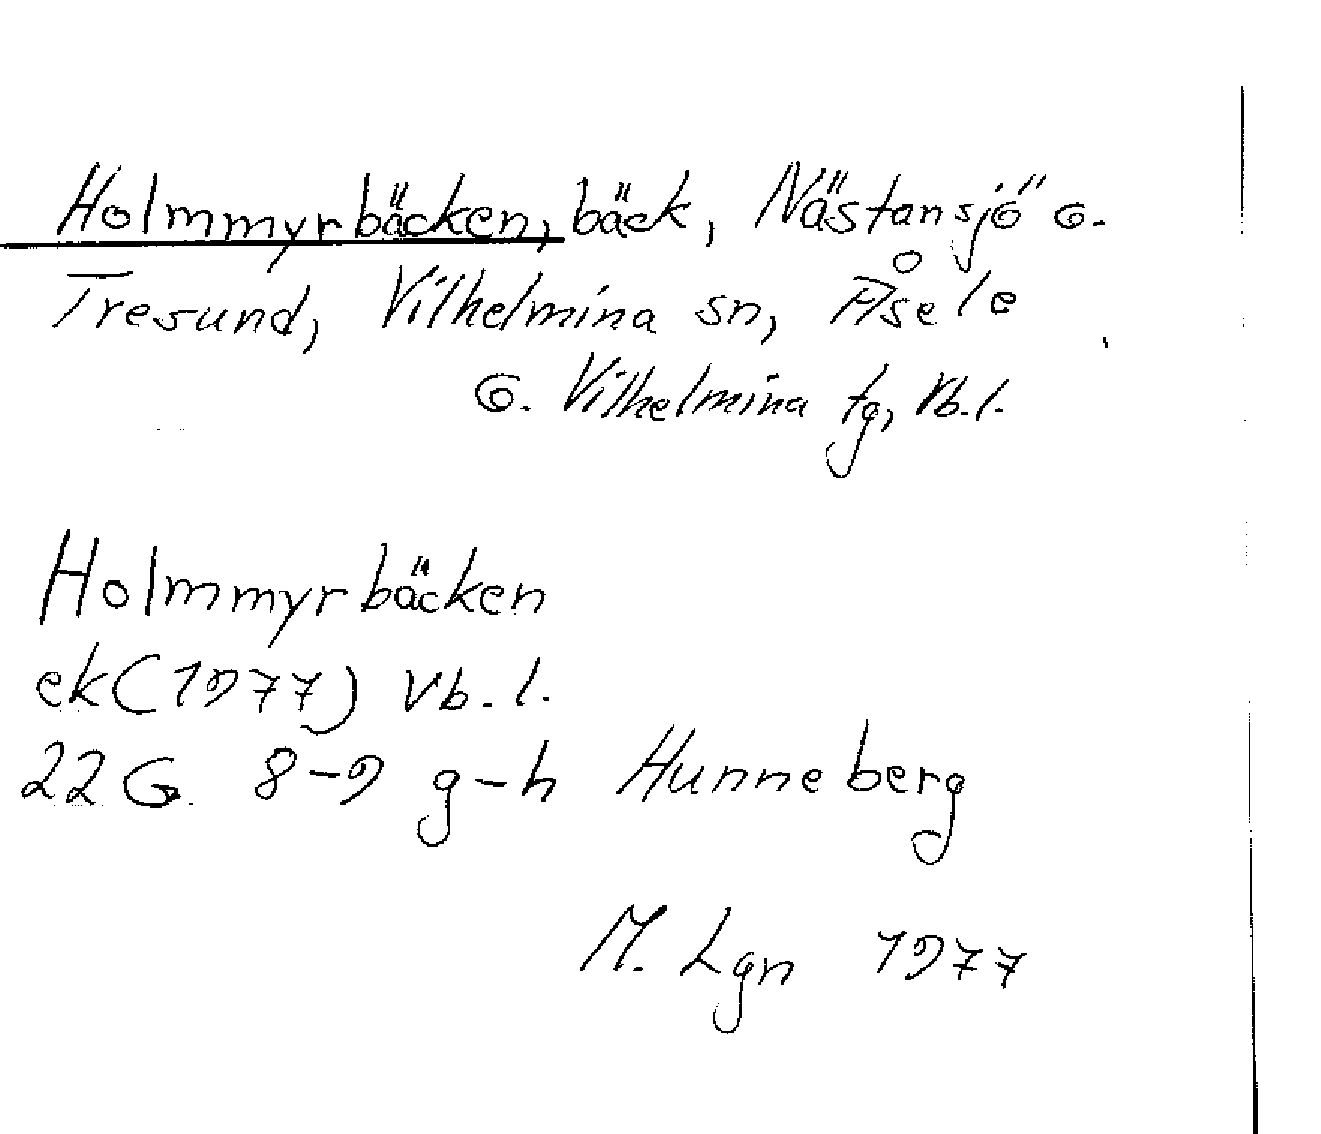 Holmmyrbäcken, bäck, Nästansjö o.
Tresund, Vilhelmina sn, Åsele
o. Vilhelmina tg, Vb.l.
Holmmyrbäcken
ek (1977) Vb.l.
22G. 8-9 g-h Hunneberg
M. Lgn 1977